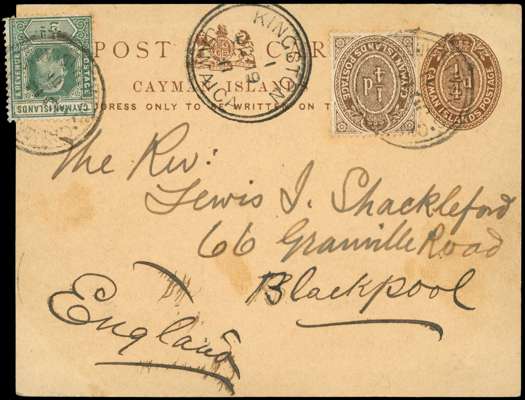 POST CARD
CAYMAN ISLANDS
ADDRESS ONLY TO BE WRITTEN ON
& REVENUE
POSTAGE
CAYMAN ISLANDS
KINGSTON
JAMAICA
CAYMAN ISLANDS POSTAGE
1/4 D
CAYMAN ISLANDS POSTAGE
1/4 d
The Rev:
Lewis J. Shackleford
66 Granville Road
Blackpool
England